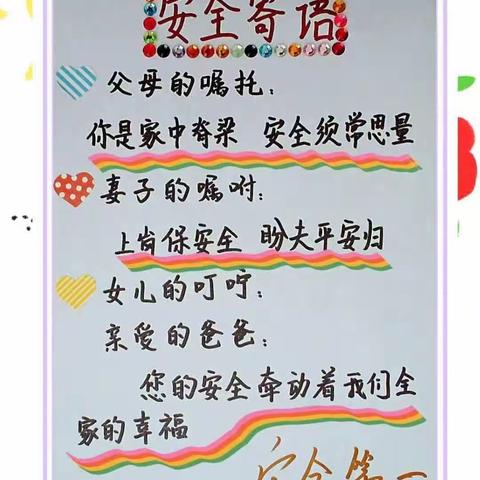 安全寄语
父母的嘱托：
你是家中脊梁 安全须常思量
妻子的嘱咐：
上岗保安全 盼夫平安归
女儿的叮咛：
亲爱的爸爸：
您的安全牵动着我们全
家的幸福
安全第一